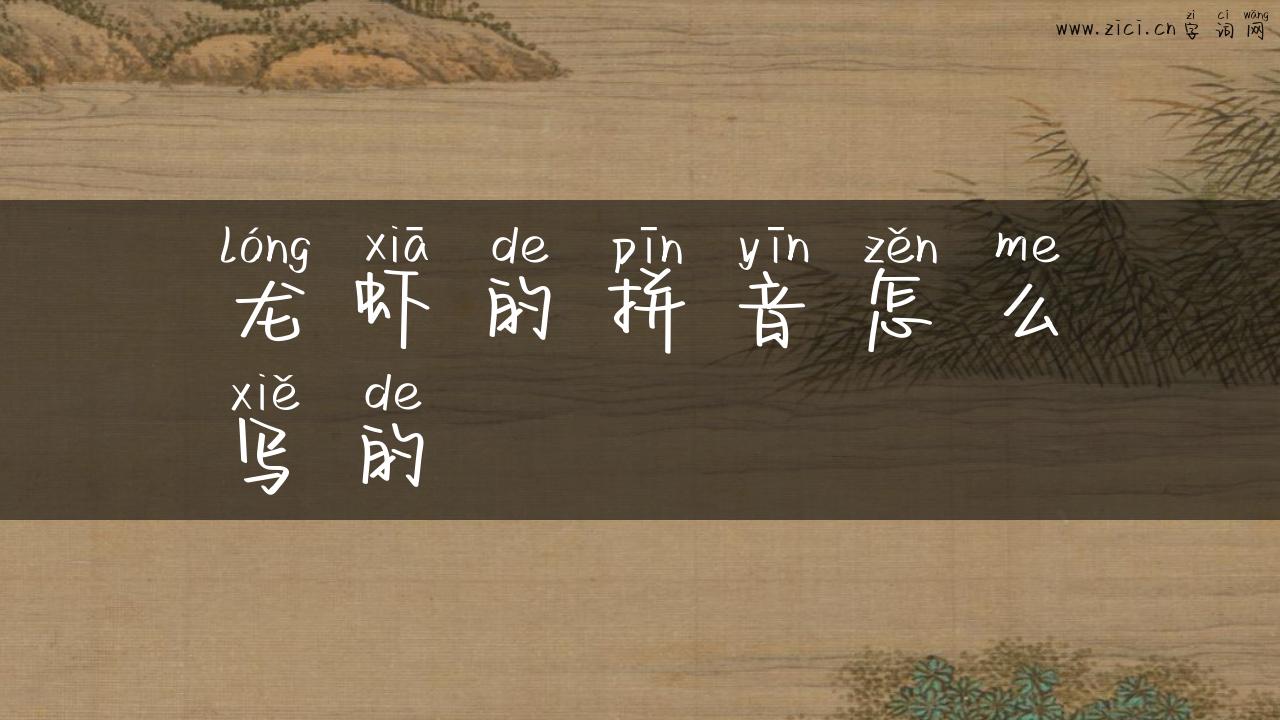 zì cí wǎng
www.zici.cn 字词网
lóng xiā de pīn yīn zěn me
龙虾的拼音怎么
xiě de
写的